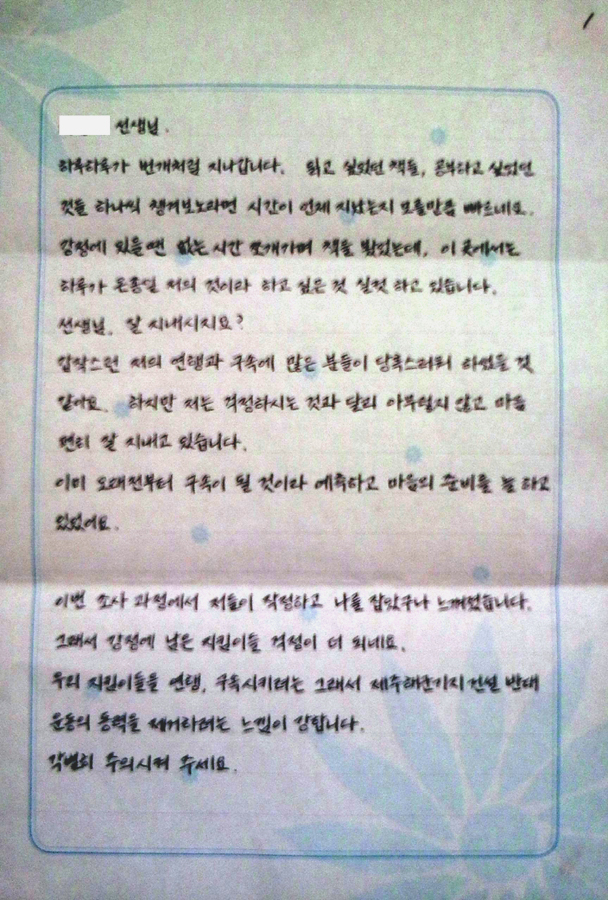 1
선생님.
하루하루가 번개처럼 지나갑니다. 읽고 싶었던 책들, 공부하고 싶었던
것들 하나씩 챙겨보노라면 시간이 언제 지났는지 모를만큼 빠르네요.
강정에 있을땐 없는 시간 쪼개가며 책을 봤었는데, 이 곳에서는
하루가 온종일 저의 것이라 하고 싶은 것 실컷 하고 있습니다.
선생님. 잘 지내시지요?
갑작스런 저의 연행과 구속에 많은 분들이 당혹스러워 하셨을 것
같아요. 하지만 저는 걱정하시는 것과 달리 아무렇지 않고 마음
편히 잘 지내고 있습니다.
이미 오래전부터 구속이 될 것이라 예측하고 마음의 준비를 늘 하고
있었어요.
이번 조사 과정에서 저들이 작정하고 나를 잡았구나 느껴졌습니다.
그래서 강정에 남은 지킴이들 걱정이 더 되네요.
우리 지킴이들을 연행, 구속시키려는 그래서 제주해군기지 건설 반대
운동의 동력을 제거하려는 느낌이 강합니다.
각별히 주의시켜 주세요.